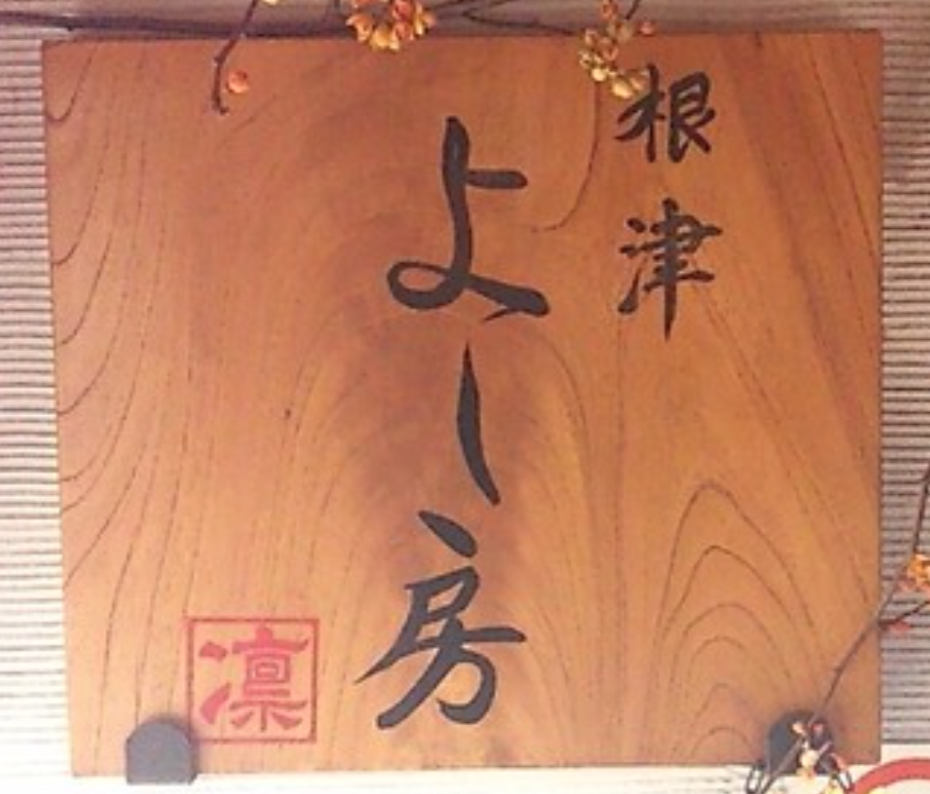 根津
よし房
凛